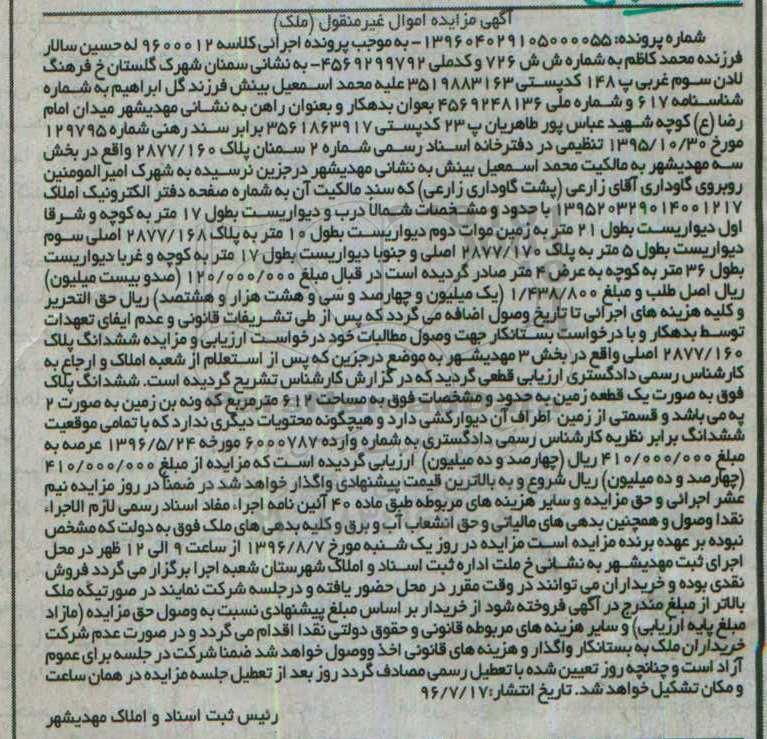 آگهی مزایده اموال غیرمنقول (ملک)
شماره پرونده: ۱۳۹۶۰۴۰۲۹۱۰۵۰۰۰۰۵۵- به موجب پرونده اجرائی کلاسه ۹۶۰۰۰۱۲ له حسین سالار
فرزنده محمد کاظم به شماره ش ش ۷۲۶ و کدملی ۴۵۶۹۲۹۹۷۹۲- به نشانی سمنان شهرک گلستان خ فرهنگ
لادن سوم غربی پ ۱۴۸ کدپستی ۳۵۱۹۸۸۳۱۶۳ علیه محمد اسمعیل بینش فرزند گل ابراهیم به شماره
شناسنامه ۶۱۷ و شماره ملی ۴۵۶۹۲۴۸۱۳۶ بعوان بدهکار و بعنوان راهن به نشانی مهدیشهر میدان امام
رضا (ع) کوچه شهید عباس پور طاهریان پ ۲۳ کدپستی ۳۵۶۱۸۶۳۹۱۷ برابر سند رهنی شماره ۱۲۹۷۹۵
مورخ ۱۳۹۵/۱۰/۳۰ تنظیمی در دفترخانه اسناد رسمی شماره ۲ سمنان پلاک ۲۸۷۷/۱۶۰ واقع در بخش
سه مهدیشهر به مالکیت محمد اسمعیل بینش به نشانی مهدیشهر درجزین نرسیده به شهرک امیرالمومنین
روبروی گاوداری آقای زارعی (پشت گاوداری زارعی) که سند مالکیت آن به شماره صفحه دفتر الکترونیک املاک
۱۳۹۵۲۰۳۲۹۰۱۴۰۰۱۲۱۷ با حدود و مشخصات شمالاً درب و دیواریست بطول ۱۷ متر به کوچه و شرقا
اول دیواریست بطول ۲۱ متر به زمین موات دوم دیواریست بطول ۱۰ متر به پلاک ۲۸۷۷/۱۶۸ اصلی سوم
دیواریست بطول ۵ متر به پلاک ۲۸۷۷/۱۷۰ اصلی و جنوبا دیواریست بطول ۱۷ متر به کوچه و غربا دیواریست
بطول ۳۶ متر به کوچه به عرض ۴ متر صادر گردیده است در قبال مبلغ ۱۲۰/۰۰۰/۰۰۰ (صدو بیست میلیون)
ریال اصل طلب و مبلغ ۱/۴۳۸/۸۰۰ (یک میلیون و چهارصد و سی و هشت هزار و هشتصد) ریال حق التحریر
و کلیه هزینه های اجرائی تا تاریخ وصول اضافه می گردد که پس از طی تشریفات قانونی و عدم ایفای تعهدات
توسط بدهکار و با درخواست بستانکار جهت وصول مطالبات خود درخواست ارزیابی و مزایده ششدانگ پلاک
۲۸۷۷/۱۶۰ اصلی واقع در بخش ۳ مهدیشهر به موضع درجزین که پس از استعلام از شعبه املاک و ارجاع به
کارشناس رسمی دادگستری ارزیابی قطعی گردید که در گزارش کارشناس تشریح گردیده است. ششدانگ پلاک
فوق به صورت یک قطعه زمین به حدود و مشخصات فوق به مساحت ۶۱۲ مترمربع که ونه بن زمین به صورت ۲
په می باشد و قسمتی از زمین اطراف آن دیوارکشی دارد و هیچگونه محتویات دیگری ندارد که با تمامی موقعیت
ششدانگ برابر نظریه کارشناس رسمی دادگستری به شماره وارده ۶۰۰۰۷۸۷ مورخه ۱۳۹۶/۵/۲۴ عرصه به
مبلغ ۴۱۰/۰۰۰/۰۰۰ ریال (چهارصد و ده میلیون) ارزیابی گردیده است که مزایده از مبلغ ۴۱۰/۰۰۰/۰۰۰
(چهارصد و ده میلیون) ریال شروع و به بالاترین قیمت پیشنهادی واگذار خواهد شد در ضمنا در روز مزایده نیم
عشر اجرائی و حق مزایده و سایر هزینه های مربوطه طبق ماده ۴۰ آئین نامه اجراء مفاد اسناد رسمی لازم الاجراء
نقدا وصول و همچنین بدهی های مالیاتی و حق انشعاب آب و برق و کلیه بدهی های ملک فوق به دولت که مشخص
نبوده بر عهده برنده مزایده است مزایده در روز یک شنبه مورخ ۱۳۹۶/۸/۷ از ساعت ۹ الی ۱۲ ظهر در محل
اجرای ثبت مهدیشهر به نشانی خ ملت اداره ثبت اسناد و املاک شهرستان شعبه اجرا برگزار می گردد فروش
نقدی بوده و خریداران می توانند در وقت مقرر در محل حضور یافته و درجلسه شرکت نمایند در صورتیکه ملک
بالاتر از مبلغ مندرج در آگهی فروخته شود از خریدار بر اساس مبلغ پیشنهادی نسبت به وصول حق مزایده (مازاد
مبلغ پایه ارزیابی) و سایر هزینه های مربوطه قانونی و حقوق دولتی نقدا اقدام می گردد و در صورت عدم شرکت
خریداران ملک به بستانکار واگذار و هزینه های قانونی اخذ ووصول خواهد شد ضمنا شرکت در جلسه برای عموم
آزاد است و چنانچه روز تعیین شده با تعطیل رسمی مصادف گردد روز بعد از تعطیل جلسه مزایده در همان ساعت
و مکان تشکیل خواهد شد. تاریخ انتشار: ۹۶/۷/۱۷
رئیس ثبت اسناد و املاک مهدیشهر